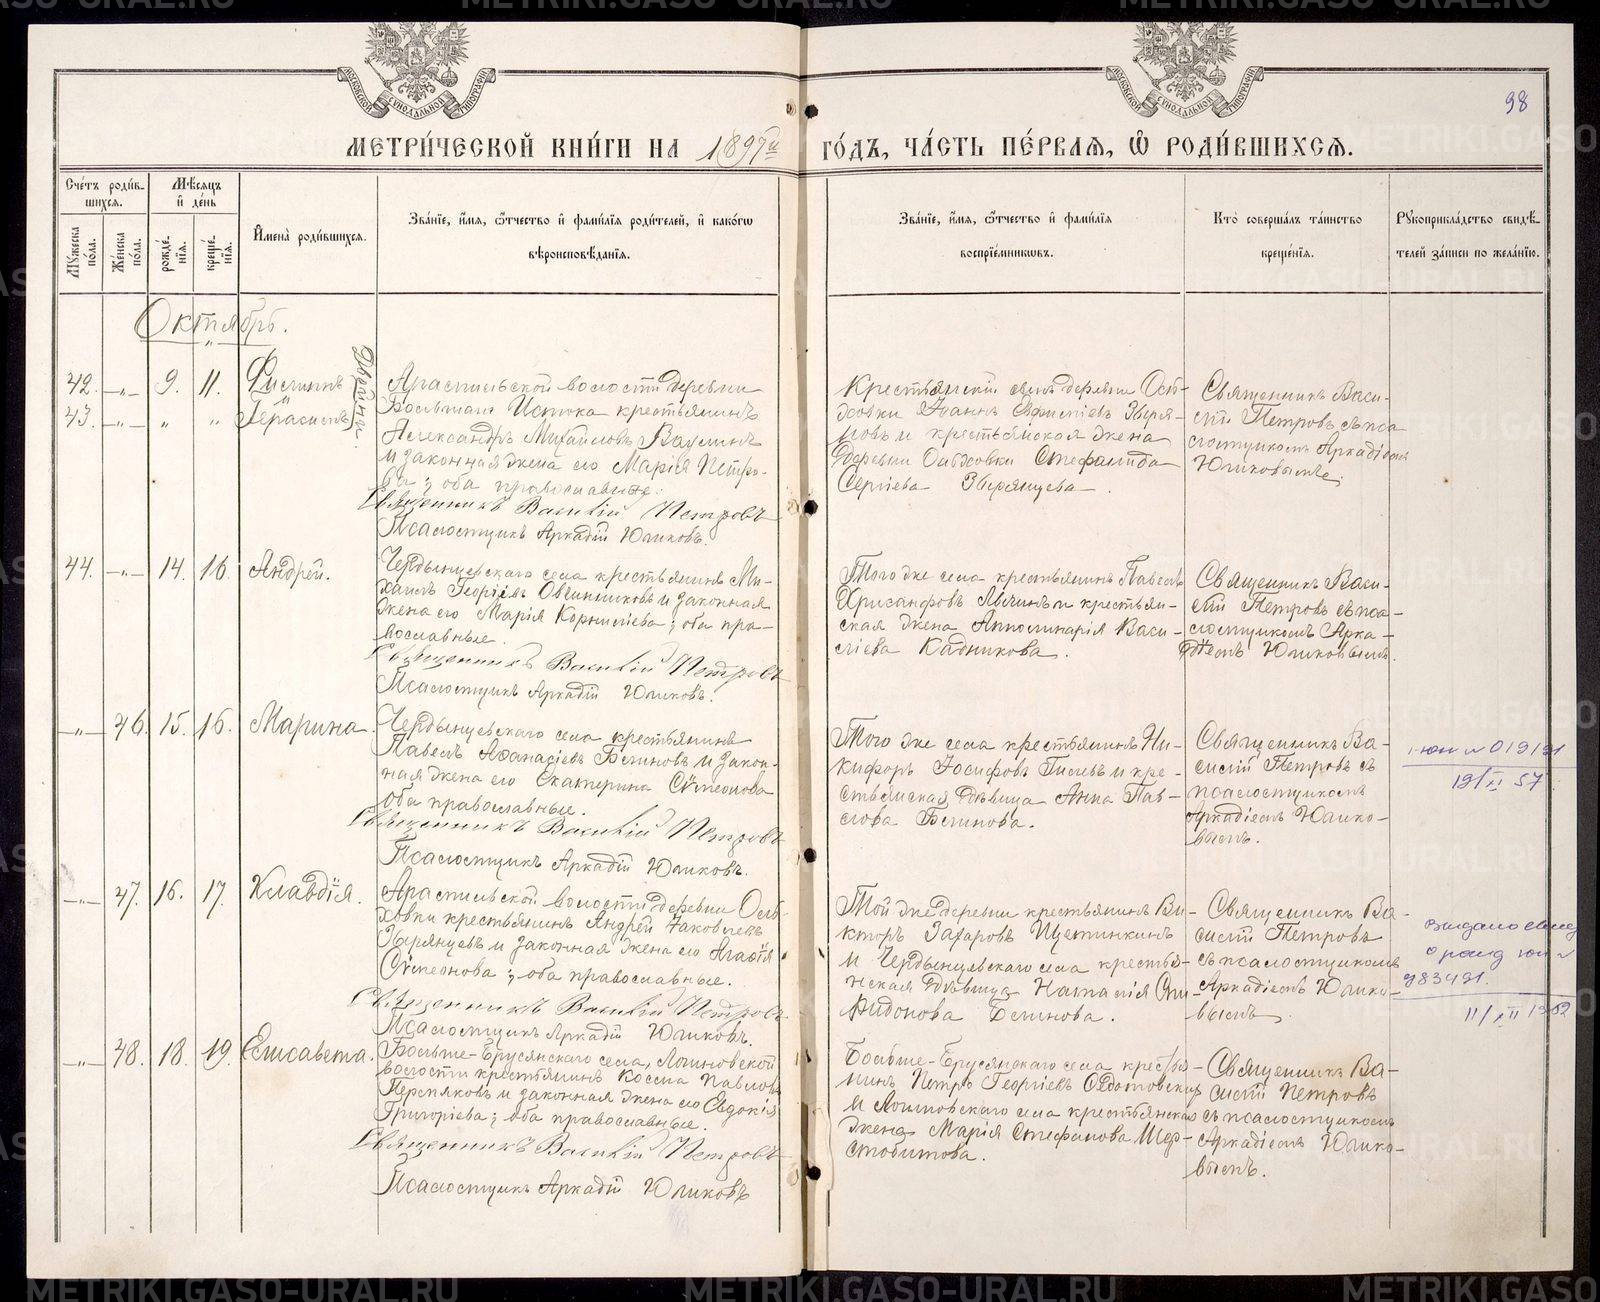 МЕТРИ́ЧЕСКОЙ КНИ́ГИ НА 1897й ГО́ДЪ, ЧА́СТЬ ПЕ́РВАѦ, Ѽ РОДИ́ВШИХСѦ.
98
Сче́тъ роди́в-
шихсѧ.
Мѣ́сѧцъ
и҆ де́нь
Мꙋ́жеска по́ла.
Же́нска по́ла.
рожде́-
нїѧ.
креще́-
нїѧ.
И҆мена̀ роди́вшихсѧ.
Зва́нїе, и҆́мѧ, ѻ҆́тчество и҆ фами́лїѧ роди́телей, и҆ како́гѡ
вѣроисповѣ́данїѧ.
Зва́нїе, и҆́мѧ, ѻ҆́тчество и҆ фами́лїѧ
воспрїе́мникѡвъ.
Кто̀ соверша́лъ та́инство
креще́нїѧ.
Рꙋкоприкла́дство свидѣ́-
телей за́писи по жела́нїю.
Октябрь.
42. —„— 9. 11.
43. —„— „ „ Герасимъ
двойни
Арамильской волости деревни
Большаго Истока крестьянинъ
Александръ Михайловъ Ваулинъ
и законная жена его Марія Петро-
ва; оба православные.
Священникъ Василій Петровъ
Псаломщикъ Аркадій Юшковъ.
Крестьянскій сынъ деревни Оль-
ховки Іоаннъ Зыря-
новъ и крестьянская жена
деревни Ольховки Стефанида
Сергіева Зырянцева.
Священникъ Васи-
лій Петровъ съ пса-
ломщикомъ Аркадіемъ
Юшковымъ.
44. —„— 14. 16. Андрей.
Чердынцевскаго села крестьянинъ Ми-
хаилъ Георгіевъ Овчинниковъ и законная
жена его Марія Корниліева; оба пра-
вославные.
Священникъ Василій Петровъ
Псаломщикъ Аркадій Юшковъ.
Того же села крестьянинъ Павелъ
Хрисанфовъ и крестьян-
ская жена Апполинарія Васи-
ліева Кадникова.
Священникъ Васи-
лій Петровъ съ пса-
ломщикомъ Арка-
діемъ Юшковымъ.
—„— 46. 15. 16. Марина.
Чердынцевскаго села крестьянинъ
Павелъ Афанасіевъ Блиновъ и закон-
ная жена его Екатерина Сѵмеонова
оба православные.
Священникъ Василій Петровъ
Псаломщикъ Аркадій Юшковъ.
Того же села крестьянинъ Ни-
кифоръ Іосифовъ и кре-
стьянская дѣвица Анна Пав-
лова Блинова.
Священникъ Ва-
силій Петровъ съ
псаломщикомъ
Аркадіемъ Юшко-
вымъ.
019191
19/II 57
—„— 47. 16. 17. Клавдія.
Арамильской волости деревни Оль-
ховки крестьянинъ Андрей Іаковлевъ
Зырянцевъ и законная жена его Агафія
Сѵмеонова; оба православные.
Священникъ Василій Петровъ
Псаломщикъ Аркадій Юшковъ.
Той же деревни крестьянинъ Ви-
кторъ Захаровъ Щетинкинъ
и Чердынцевскаго села крестья-
нская дѣвица Наталія Спи-
ридонова Блинова.
Священникъ Ва-
силій Петровъ
съ псаломщикомъ
Аркадіемъ Юшко-
вымъ.
выдано свид
о рожд
983491.
11/XII 1962
—„— 48. 18. 19. Елисавета.
Больше-Брусянскаго села, Логиновской
волости крестьянинъ Косма Павловъ
Пермяковъ и законная жена его Евдокія
Григоріева; оба православные.
Священникъ Василій Петровъ
Псаломщикъ Аркадій Юшковъ
Больше-Брусянскаго села крестья-
нинъ Петръ Георгіевъ
и Логиновскаго села крестьянская
жена Марія Стефанова Шер-
стобитова.
Священникъ Ва-
силій Петровъ
съ псаломщикомъ
Аркадіемъ Юшко-
вымъ.
METRIKI.GASO-URAL.RU